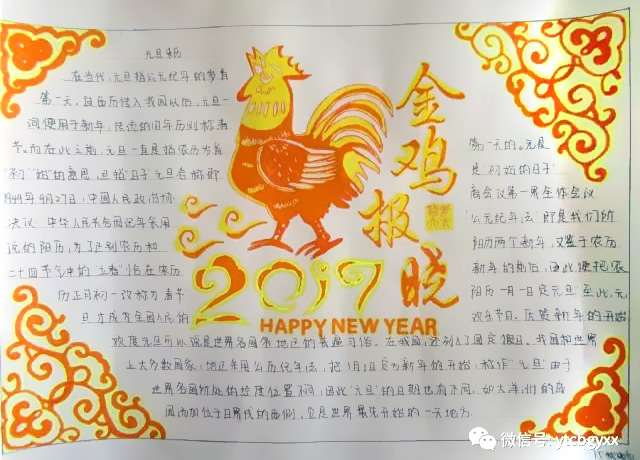 元旦来历
在当代，元旦指公元纪年的岁首
第一天，自西历传入我国以后，元旦一
词便用于新年，传统的旧年历则称春
节。而在此之前，元旦一直是指农历岁首
第一天的。元是
"初"始"的意思，旦"指"日子"元旦合称即
是"初始的日子"
1949年9月27日，中国人民政治协
商会议第一界全体会议
决议"中华人民共和国纪年采用
"公元纪年法"即是我们所
说的阳历，为了区别农历和
阳历两个新年，又鉴于农历
二十四节气中的"立春"恰在农历
新年的前后，因此便把农
历正月初一改称为"春节
阳历一月一日定元旦"至此，元
日才成为全国人民的
欢乐节日。庆贺新年的开始
欢度元旦可以说是世界各国各地区的普遍习俗。在我国，还列入了国定假日。我国和世界
上大多数国家、地区采用公历纪年法，把1月1日定为新年的开始，称作"元旦"由于
世界各国所处的经度位置不同，因此"元旦"的日期也有不同，如大洋洲的
国加位于日界线的西侧，它是世界最先开始的一天地方
金鸡报晓
2017
HAPPY NEW YEAR
微信号: ytcbgyxx